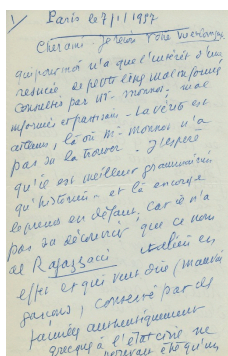 1/ Paris le 7/1/1997
Cher ami - Je reçois votre
qui pour moi n'a que l'intérêt d'une
mal informé
par Mr. Monnos - mal
informé et partisan - La vérité est
ailleurs, là où Mr. Monnos n'a
pas su la trouver - J'espère
qu'il est meilleur grammairien
qu'historien - et là encore
je prends en défaut, car il n'a
pas su découvrir que ce nom
de Ragazzacci italien en
effet et qui veut dire (mauvais
garçons), conservé par des
familles authentiquement
grecques à l'état civil ne
pouvait être qu'un